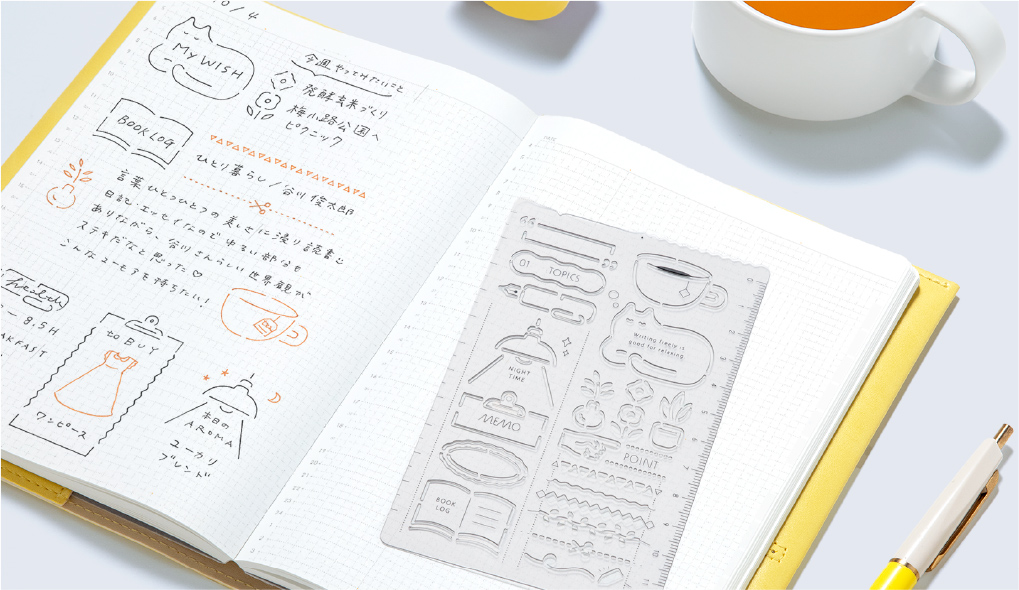 10/4
MY WISH
今週やってみたいこと
発酵玄米づくり
梅小路公園へ
ピクニック
BOOK LOG
ひとり暮らし/谷川俊太郎
言葉ひとつひとつの美しさに浸り読書◡̈
日記、エッセイなのでゆるい部分も
ありながら、谷川さんらしい世界観が
ステキだなと思った♡
こんなユーモアを持ちたい!
Health
8.5H
AKFAST
to BUY
ワンピース
本日の
AROMA
ユーカリ
ブレンド
DATE
01 TOPICS
NIGHT
TIME
MEMO
BOOK
LOG
Writing freely is
good for relaxing.
POINT